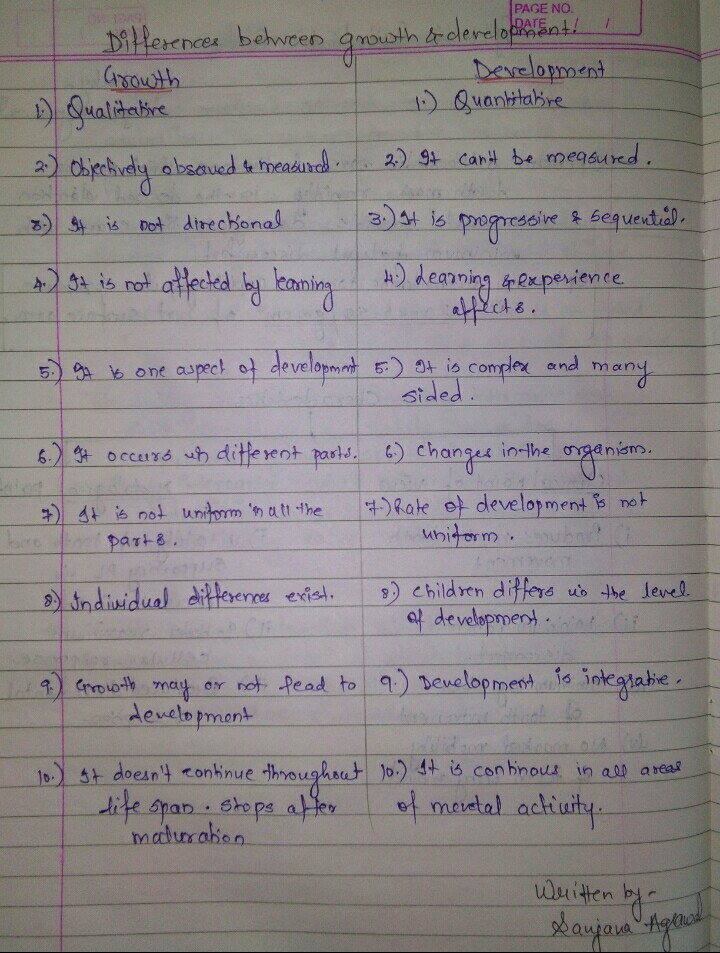 PAGE NO.
DATE / /
Differences between growth & development!
Growth
Development
1.) Qualitative
1.) Quantitative
2.) Objectively observed & measured.
2.) It can't be measured.
3.) It is not directional
3.) It is progressive & sequential.
4.) It is not affected by learning
4.) Learning & experience
affects.
5.) It is one aspect of development
5.) It is complex and many
sided.
6.) It occurs in different parts.
6.) changes in the organism.
7.) It is not uniform in all the
parts.
7.) Rate of development is not
uniform.
8.) Individual differences exist.
8.) children differs in the level
of development.
9.) Growth may or not lead to
development
9.) Development is integrative.
10.) It doesn't continue throughout
life span. stops after
maturation
10.) It is continous in all areas
of mental activity.
Written by-
Sanjana Agrawal